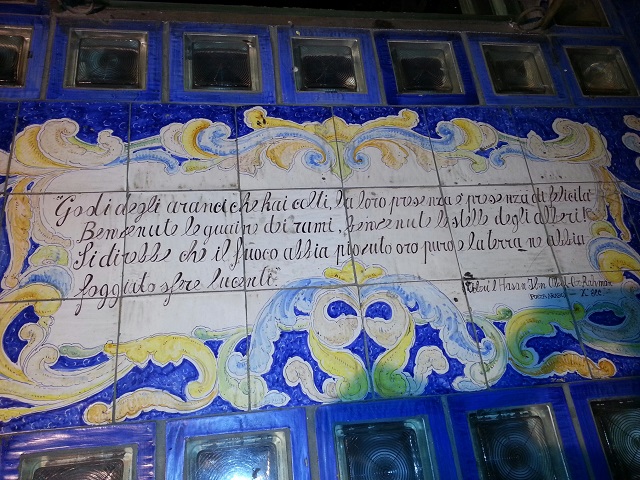 "Godi degli aranci che hai colti, la loro presenza è presenza di felicità
Benvenute le guance dei rami, benvenute le stelle degli alberi!
Si direbbe che il fuoco abbia piovuto oro puro e la terra ne abbia
foggiato sfere lucenti"
Hasan Ibn
Poeta Arabo